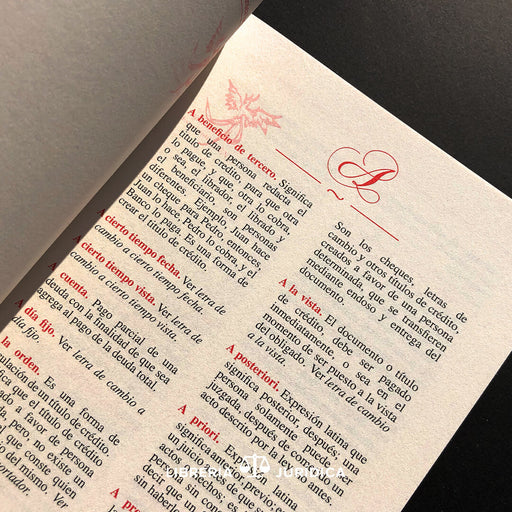 A
A beneficio de tercero. Significa
que una persona redacta el
título de crédito, para que otra
lo pague, y que, otra lo cobre,
o sea, el librador, el librado y
el beneficiario, son personas
diferentes. Ejemplo, Juan hace
un cheque para Pedro, entonces
Juan lo hace, Pedro lo cobra, y el
Banco lo paga. Es una forma de
crear el título de crédito.
A cierto tiempo fecha. Ver letra de
cambio a cierto tiempo fecha.
A cierto tiempo vista. Ver letra de
cambio a cierto tiempo vista.
A cuenta. Pago parcial de una
deuda con la finalidad de que sea
agrega al pago de la deuda total.
A día fijo. Ver letra de cambio a
día fijo.
la orden. Es una forma de
culación de un título de crédito.
fica que el título de crédito
ado, a favor de persona
da, pero, no existe un
que conste quien
o del mismo. Ver
portador.
Son los cheques, letras de
cambio y otros títulos de crédito,
creados a favor de una persona
determinada, que se transfieren
mediante endoso y entrega del
documento.
A la vista. El documento o título
de crédito, debe ser pagado
inmediatamente, o sea, en el
momento de ser puesto a la vista
del obligado. Ver letra de cambio
a la vista.
A posteriori. Expresión latina que
significa posterior, después; una
persona solamente puede ser
juzgada, después, y no antes, del
acto descrito por la ley
A priori. Expresión latina
significa antes, previo;
un juicio antes que
actos o hechos, es
decir que un
sin que con
sin haberlo
A pro
LIBRERÍA JURÍDICA